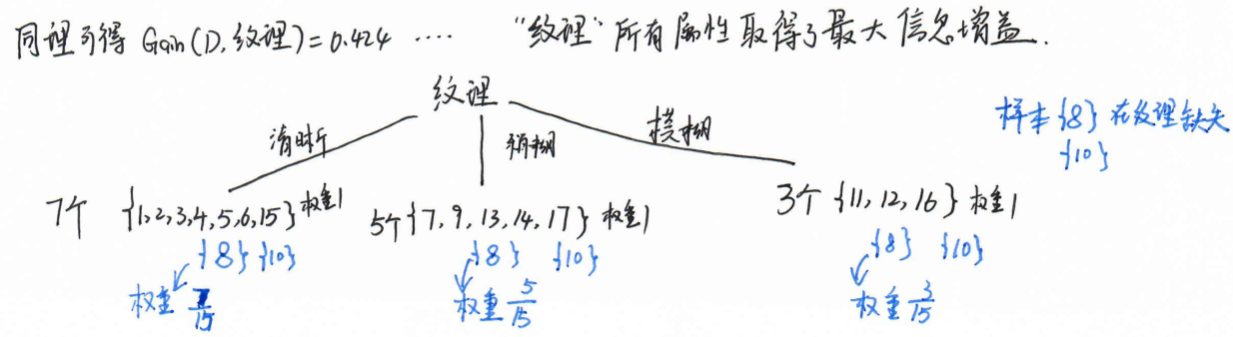 同理可得 Gain(D,纹理)=0.424 .... "纹理"所有属性取得了最大信息增益.
纹理
清晰 稍糊 模糊
样本{8}在纹理缺失
{10}
7个 {1,2,3,4,5,6,15}权重1 5个{7,9,13,14,17}权重1 3个{11,12,16}权重1
{8} {10} {8} {10} {8} {10}
权重 7/15 权重 5/15 权重 3/15